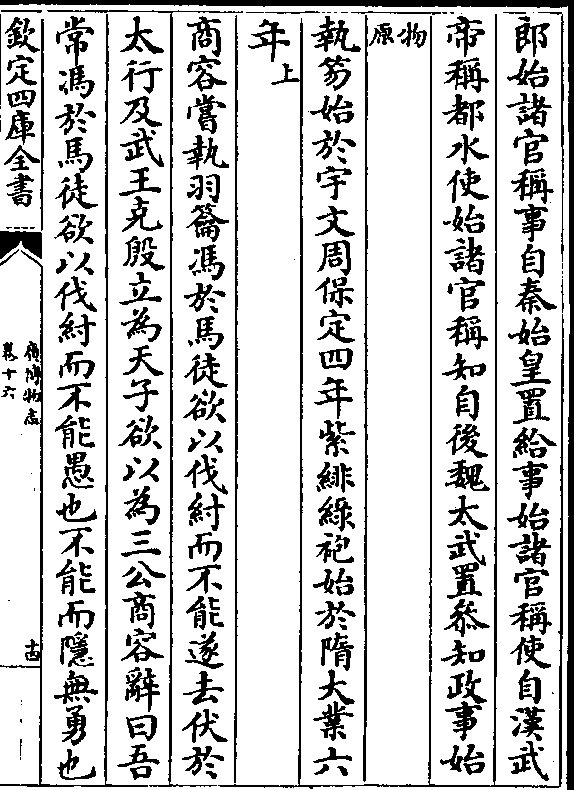 郎始諸官稱事自秦始皇置給事始諸官稱使自漢武
帝稱都水使始諸官稱知自後魏太武置叅知政事始
物原
執笏始於宇文周保定四年紫緋綠袍始於隋大業六
年上
商容嘗執羽籥馮於馬徒欲以伐紂而不能遂去伏於
太行及武王克殷立為天子欲以為三公商容辭曰吾
常馮於馬徒欲以伐紂而不能愚也不能而隱無勇也
欽定四庫全書
廣博物志
卷十六
古